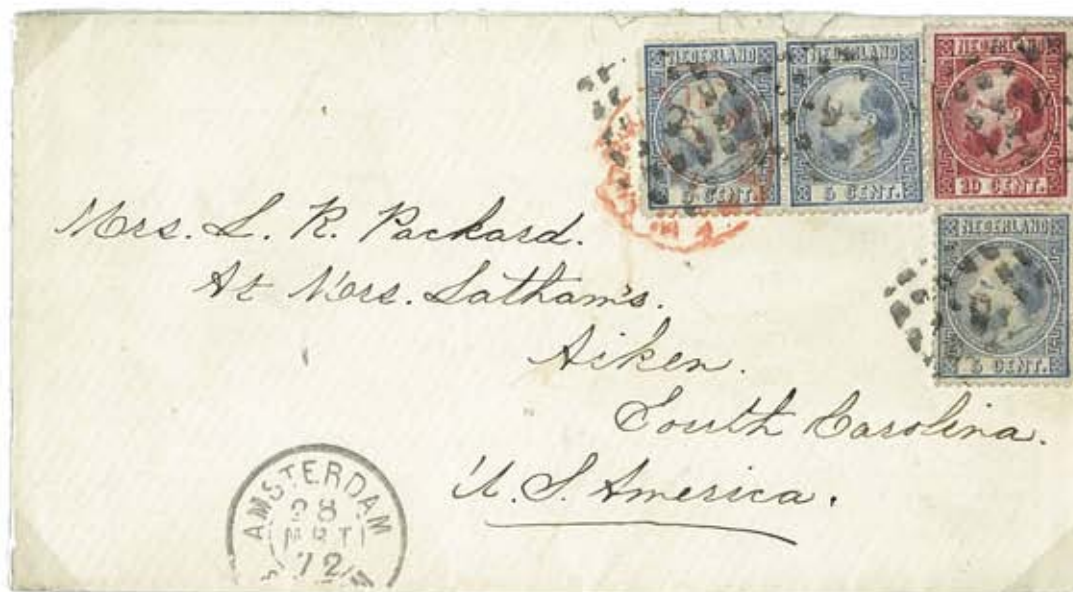 NEDERLAND NEDERLAND NEDERLAND
5 CENT. 5 CENT. 10 CENT.
NEDERLAND
5 CENT.
Mrs. L. R. Packard.
At Mrs. Latham's.
Aiken.
South Carolina.
U. S. America.
AMSTERDAM
28
MRT
72